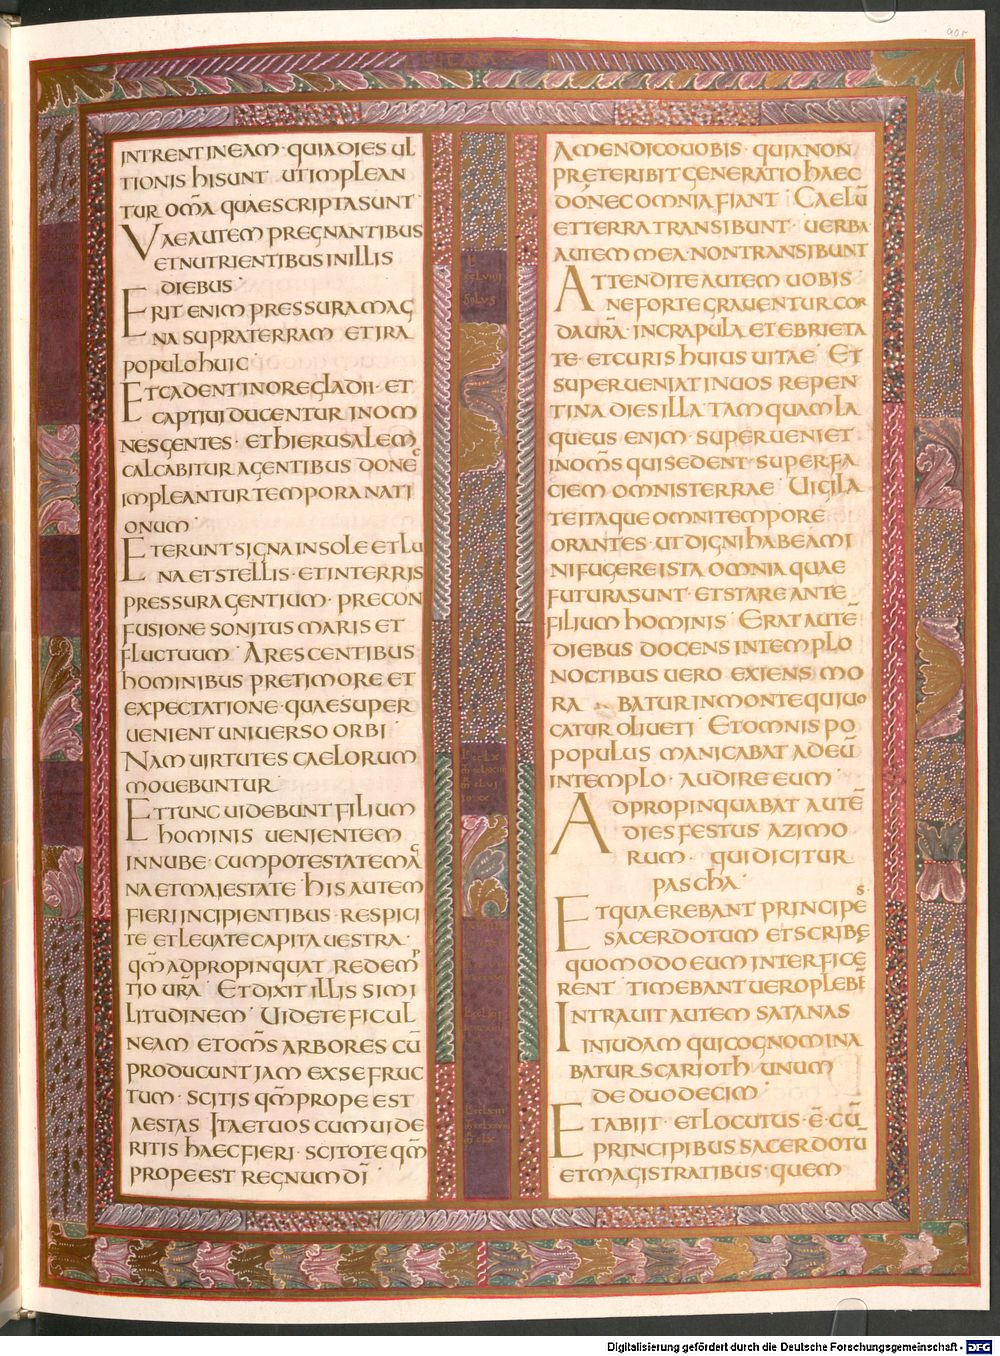 90r
LUCAM
INTRENT IN EAM · QUIA DIES UL
TIONIS HI SUNT · UT IMPLEAN
TUR OM̅A QUAE SCRIPTA SUNT ·
VAE AUTEM PREGNANTIBUS
ET NUTRIENTIBUS IN ILLIS
DIEBUS ·
ERIT ENIM PRESSURA MAG
NA SUPRA TERRAM · ET IRA
POPULO HUIC ·
ET CADENT IN ORE GLADII · ET
CAPTIUI DUCENTUR IN OM
NES GENTES · ET HIERUSALEM
CALCABITUR A GENTIBUS DONEC
IMPLEANTUR TEMPORA NATI
ONUM ·
ET ERUNT SIGNA IN SOLE ET LU
NA ET STELLIS · ET IN TERRIS
PRESSURA GENTIUM · PRE CON
FUSIONE SONITUS MARIS ET
FLUCTUUM · ARESCENTIBUS
HOMINIBUS PRE TIMORE ET
EXPECTATIONE · QUAE SUPER
UENIENT UNIUERSO ORBI ·
NAM UIRTUTES CAELORUM
MOUEBUNTUR ·
ET TUNC UIDEBUNT FILIUM
HOMINIS UENIENTEM
IN NUBE · CUM POTESTATE MAG
NA ET MAIESTATE · HIS AUTEM
FIERI INCIPIENTIBUS · RESPICI
TE ET LEUATE CAPITA UESTRA ·
QM̅ ADPROPINQUAT REDEMP
TIO UR̅A · ET DIXIT ILLIS SIMI
LITUDINEM · UIDETE FICUL
NEAM ET OM̅S ARBORES CU̅
PRODUCUNT IAM EX SE FRUC
TUM · SCITIS QM̅ PROPE EST
AESTAS · ITA ET UOS CUM UIDE
RITIS HAEC FIERI · SCITOTE QM̅
PROPE EST REGNUM DI̅
AMEN DICO UOBIS · QUIA NON
PRETERIBIT GENERATIO HAEC
DONEC OMNIA FIANT · CAELU̅
ET TERRA TRANSIBUNT · UERBA
AUTEM MEA NON TRANSIBUNT
ATTENDITE AUTEM UOBIS
NE FORTE GRAUENTUR COR
DA UR̅A · IN CRAPULA ET EBRIETA
TE · ET CURIS HUIUS UITAE · ET
SUPERUENIAT IN UOS REPEN
TINA DIES ILLA · TAMQUAM LA
QUEUS ENIM · SUPERUENIET
IN OM̅S QUI SEDENT SUPER FA
CIEM OMNIS TERRAE · UIGILA
TE ITAQUE OMNI TEMPORE
ORANTES · UT DIGNI HABEAMI
NI FUGERE ISTA OMNIA QUAE
FUTURA SUNT · ET STARE ANTE
FILIUM HOMINIS · ERAT AUTE̅
DIEBUS DOCENS IN TEMPLO
NOCTIBUS UERO EXIENS MO
RA BATUR IN MONTE QUI UO
CATUR OLIUETI · ET OMNIS PO
POPULUS MANICABAT AD EU̅
IN TEMPLO · AUDIRE EUM ·
ADPROPINQUABAT AUTE̅
DIES FESTUS AZIMO
RUM · QUI DICITUR
PASCHA ·
ET QUAEREBANT PRINCIPES
SACERDOTUM ET SCRIBĘ
QUOMODO EUM INTERFICE
RENT · TIMEBANT UERO PLEBE̅
INTRAUIT AUTEM SATANAS
IN IUDAM QUI COGNOMINA
BATUR SCARIOTH UNUM
DE DUODECIM ·
ET ABIIT · ET LOCUTUS · E̅ · CU̅
PRINCIPIBUS SACERDOTU̅
ET MAGISTRATIBUS · QUEM
Digitalisierung gefördert durch die Deutsche Forschungsgemeinschaft - DFG